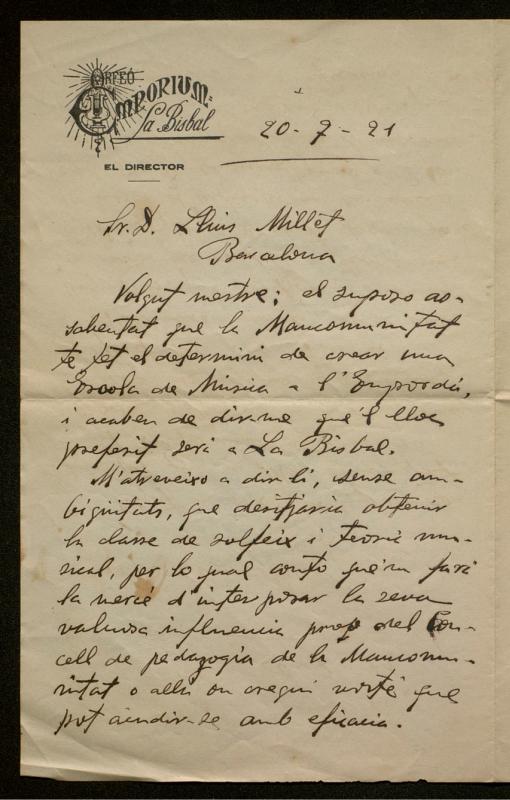 ORFEÓ
EMPORIUM
La Bisbal
EL DIRECTOR
20-7-21
Sr. D. Lluis Millet
Barcelona
Volgut mestre: el suposo as-
sabentat que la Mancomunitat
té fet el determini de crear una
Escola de Música a l'Empordá,
i acaben de dir-me que'l lloc
preferit serà a La Bisbal.
M'atreveixo a dir-li, sense am-
bigüitats, que desitjaria obtenir
la classe de solfeix i teoria mu-
sical, per lo qual conto que'm farà
la mercé d'interposar la seva
valuosa influencia prop del Con-
cell de pedagogía de la Mancomu-
nitat o allí on cregui vosté que
pot acudir-se amb eficacia.